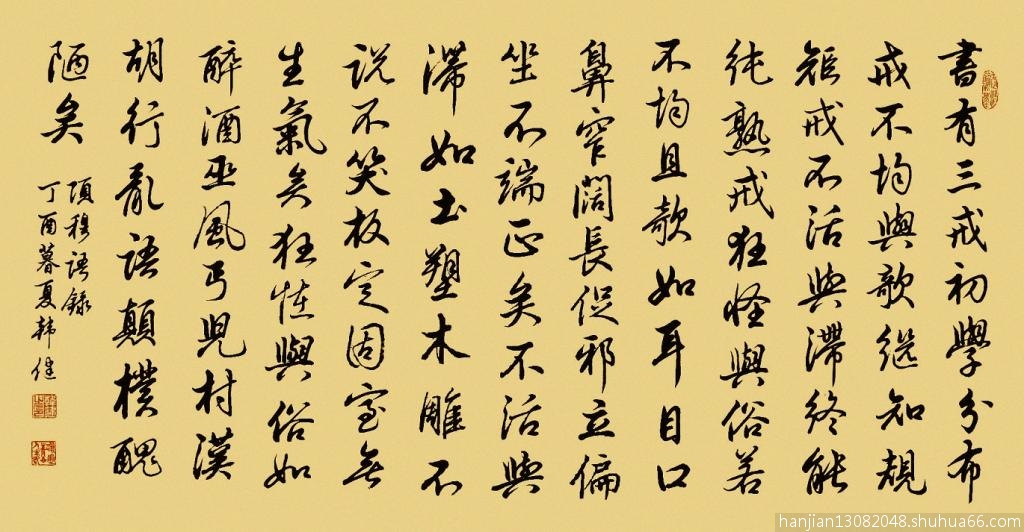 書有三戒初學分布
戒不均與欹继知規
矩戒不活與滞终能
纯熟戒狂怪與俗若
不均且欹如耳目口
鼻窄闊長促邪立偏
坐不端正矣不活與
滞如土塑木雕不
说不笑板定固窒无
生氣矣狂怪與俗如
醉酒巫風丐兒村漢
胡行亂语顛樸醜
陋矣
項穆语録
丁酉暮夏韩健
hanjian13082048.shuhua66.com